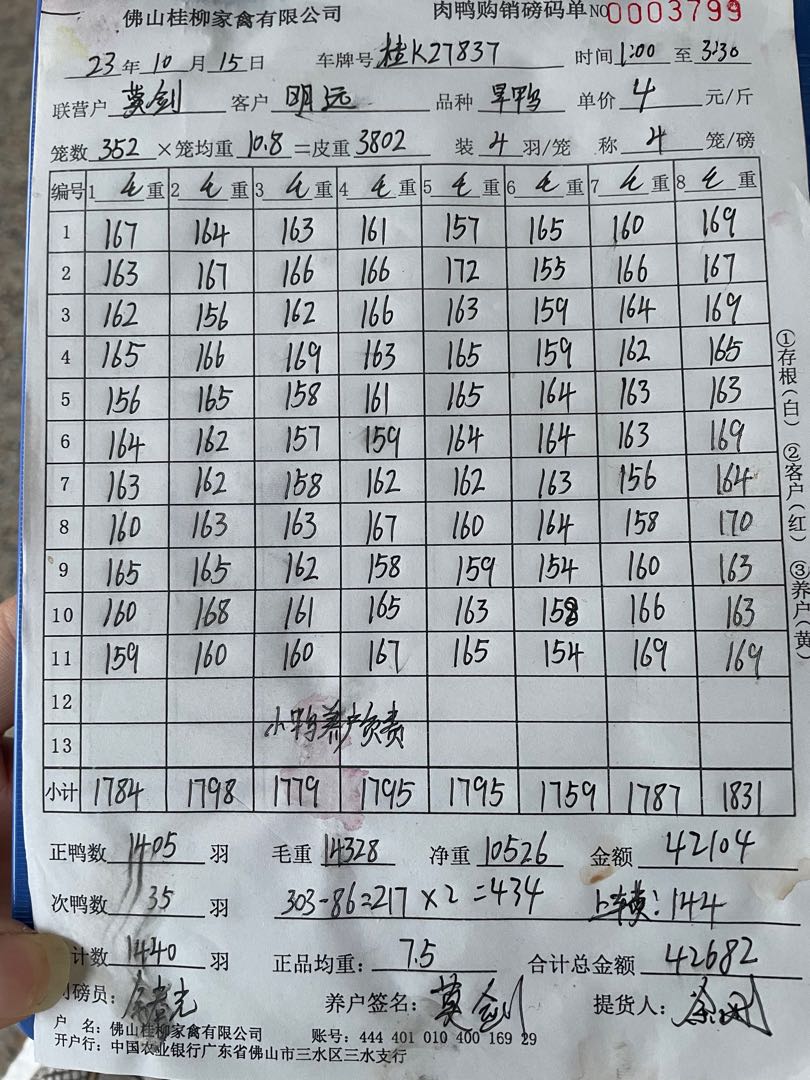 佛山桂柳家禽有限公司 肉鸭购销磅码单 NO 0003799
23 年 10 月 15 日 车牌号 桂K27837 时间 1:00 至 3:30
联营户 莫剑 客户 明远 品种 旱鸭 单价 4 元/斤
笼数 352 ×笼均重 10.8 =皮重 3802 装 4 羽/笼 称 4 笼/磅
编号 1 毛 重 2 毛 重 3 毛 重 4 毛 重 5 毛 重 6 毛 重 7 毛 重 8 毛 重
1 167 164 163 161 157 165 160 169
2 163 167 166 166 172 155 166 167
3 162 156 162 166 163 159 164 169
4 165 166 169 163 165 159 162 165
5 156 165 158 161 165 164 163 163
6 164 162 157 159 164 164 163 169
7 163 162 158 162 162 163 156 164
8 160 163 163 167 160 164 158 170
9 165 165 162 158 159 154 160 163
10 160 168 161 165 163 158 166 163
11 159 160 160 167 165 154 169 169
12
小鸭养户负责
13
小计 1784 1798 1779 1795 1795 1759 1787 1831
正鸭数 1405 羽 毛重 14328 净重 10526 金额 42104
次鸭数 35 羽 303-86=217×2=434 上车费:144
计数 1440 羽 正品均重: 7.5 合计总金额 42682
磅员: 养户签名: 莫剑 提货人:
户 名: 佛山桂柳家禽有限公司 账号: 444 401 010 400 169 29
开户行: 中国农业银行广东省佛山市三水区三水支行
①存根(白) ②客户(红) ③养户(黄)